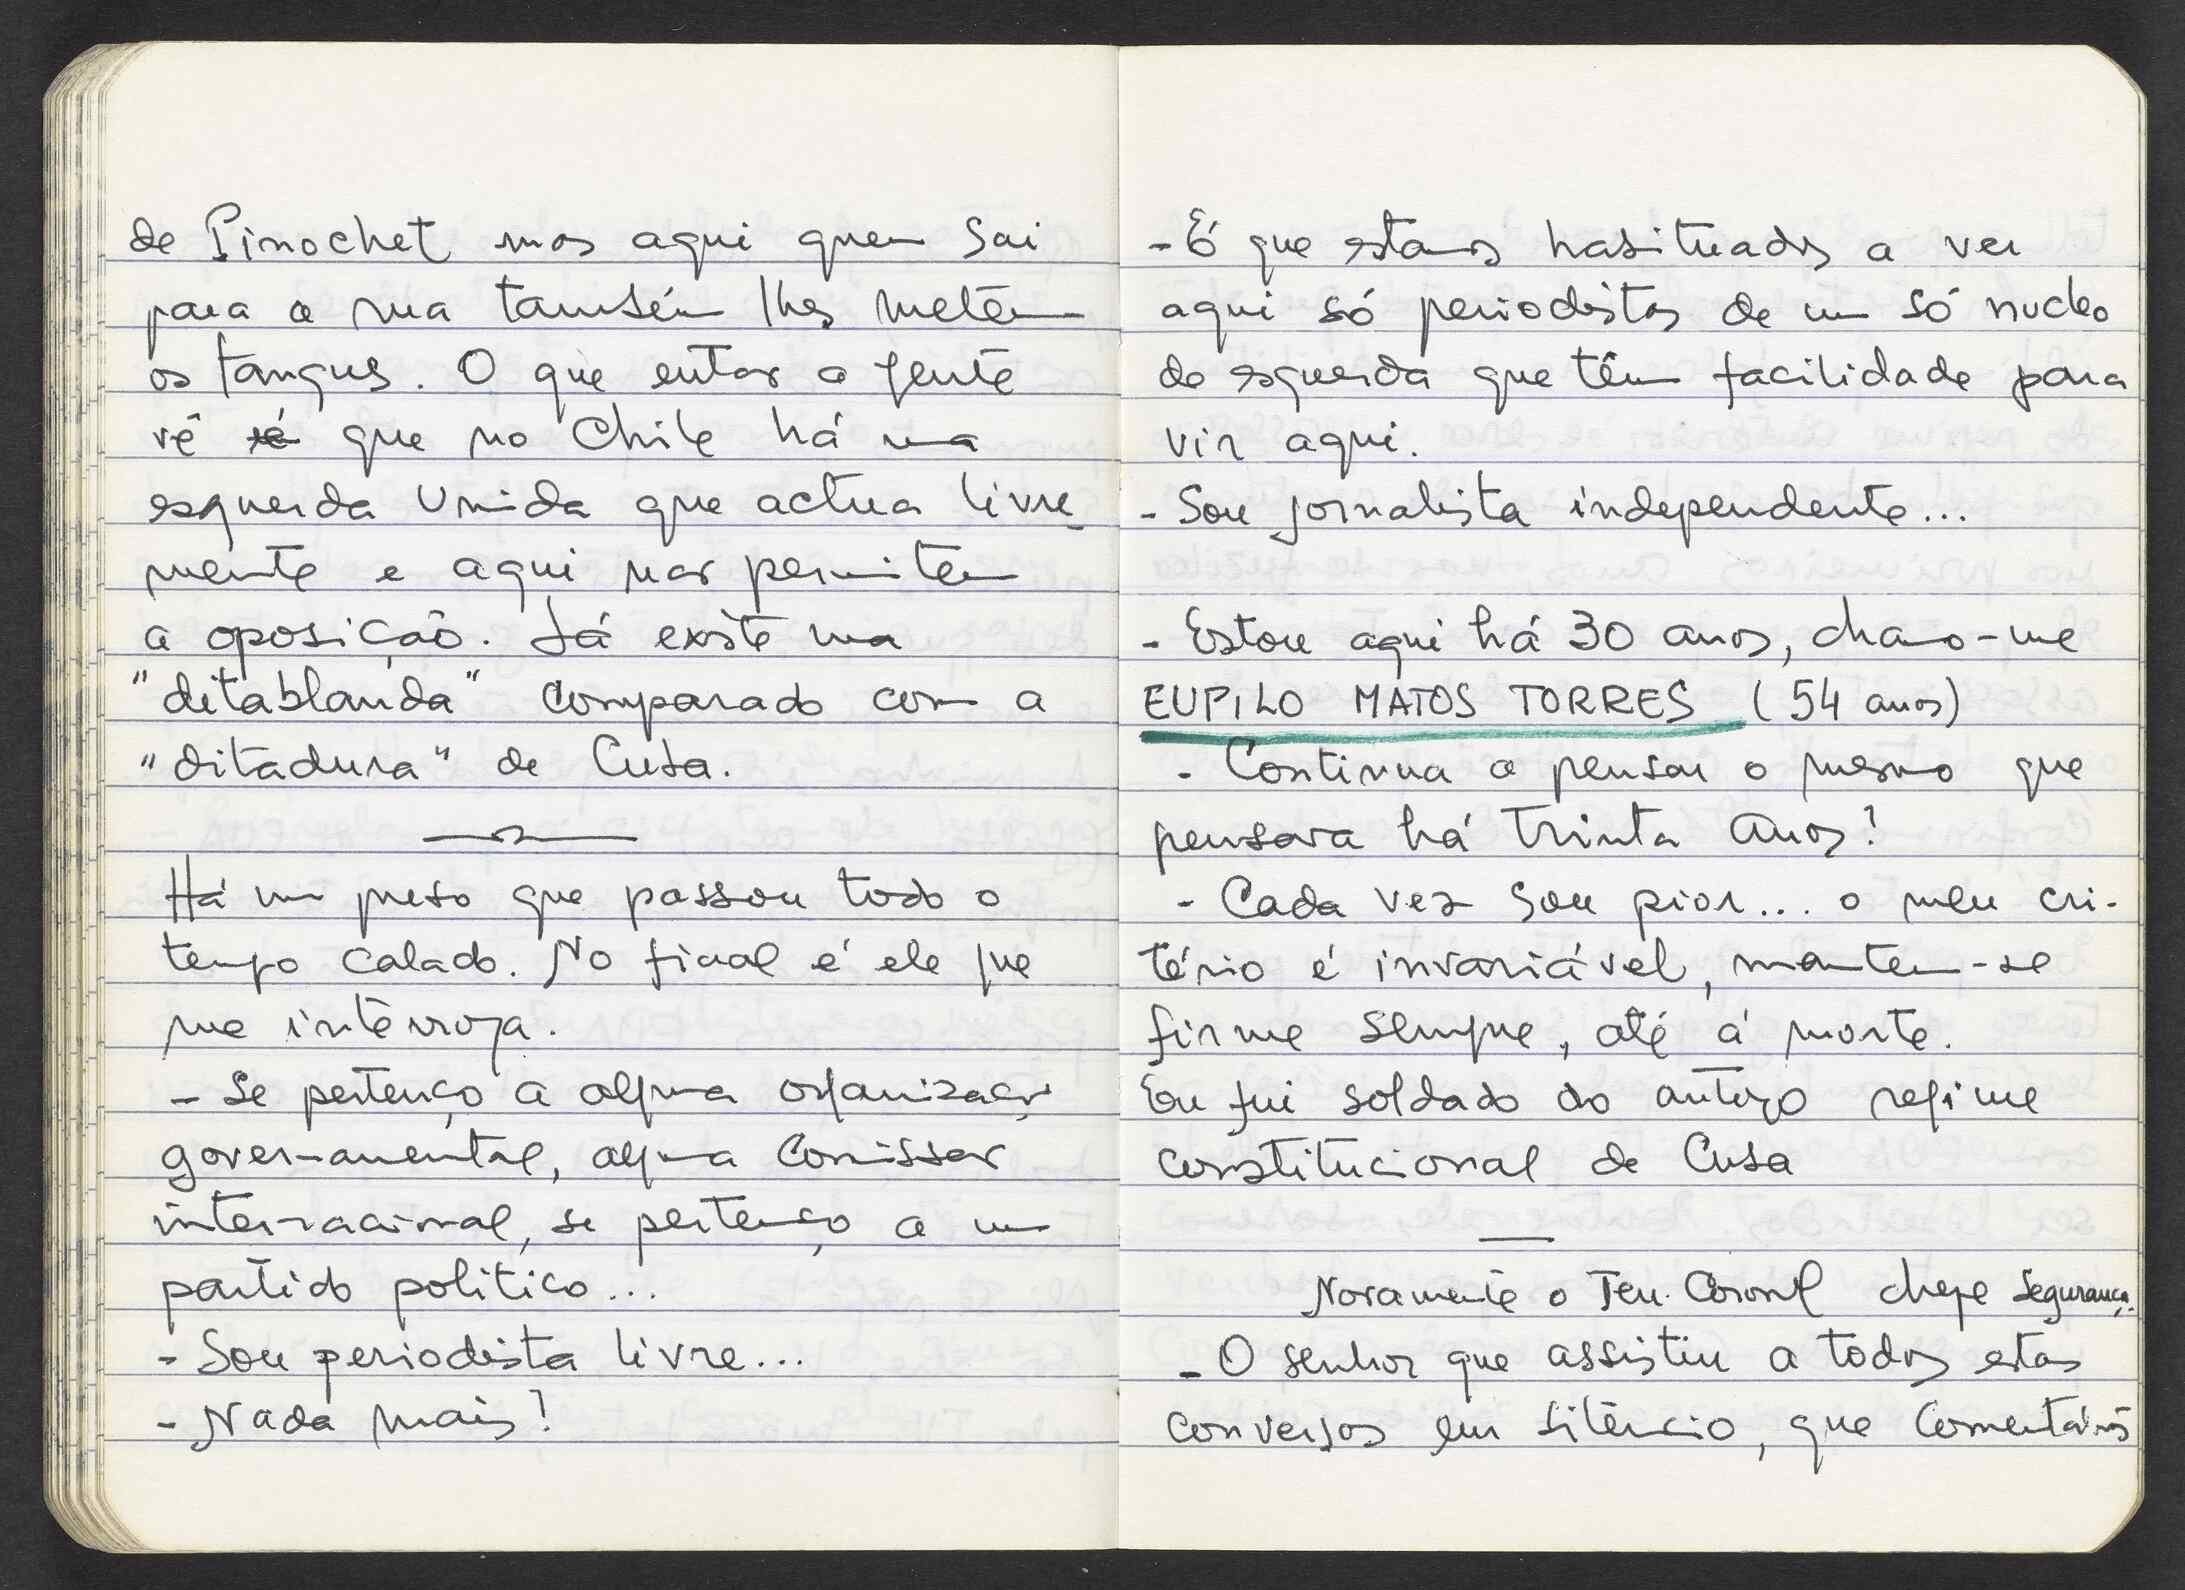 de Pinochet mas aqui quem sai
para a rua também lhes metem
os tanques. O que então a gente
vê é que no Chile há uma
esquerda Unida que actua livre-
mente e aqui não permitem
a oposição. Lá existe uma
"ditablanda" comparado com a
"ditadura" de Cuba.
Há um preso que passou todo o
tempo calado. No final é ele que
me interroga.
- Se pertenço a alguma organização
governamental, alguma Comissão
internacional, se pertenço a um
partido politico...
- Sou periodista livre...
- Nada mais?
- É que estamos habituados a ver
aqui só periodistas de um só nucleo
de esquerda que têm facilidade para
vir aqui.
- Sou jornalista independente...
- Estou aqui há 30 anos, chamo-me
EUPILO MATOS TORRES (54 anos)
- Continua a pensar o mesmo que
pensava há trinta anos?
- Cada vez sou pior... o meu cri-
tério é invariável, mantem-se
firme sempre, até á morte.
Eu fui soldado do antigo regime
constitucional de Cuba
Novamente o Ten. Coronel chefe Segurança.
- O senhor que assistiu a todas estas
conversas em silêncio, que comentários